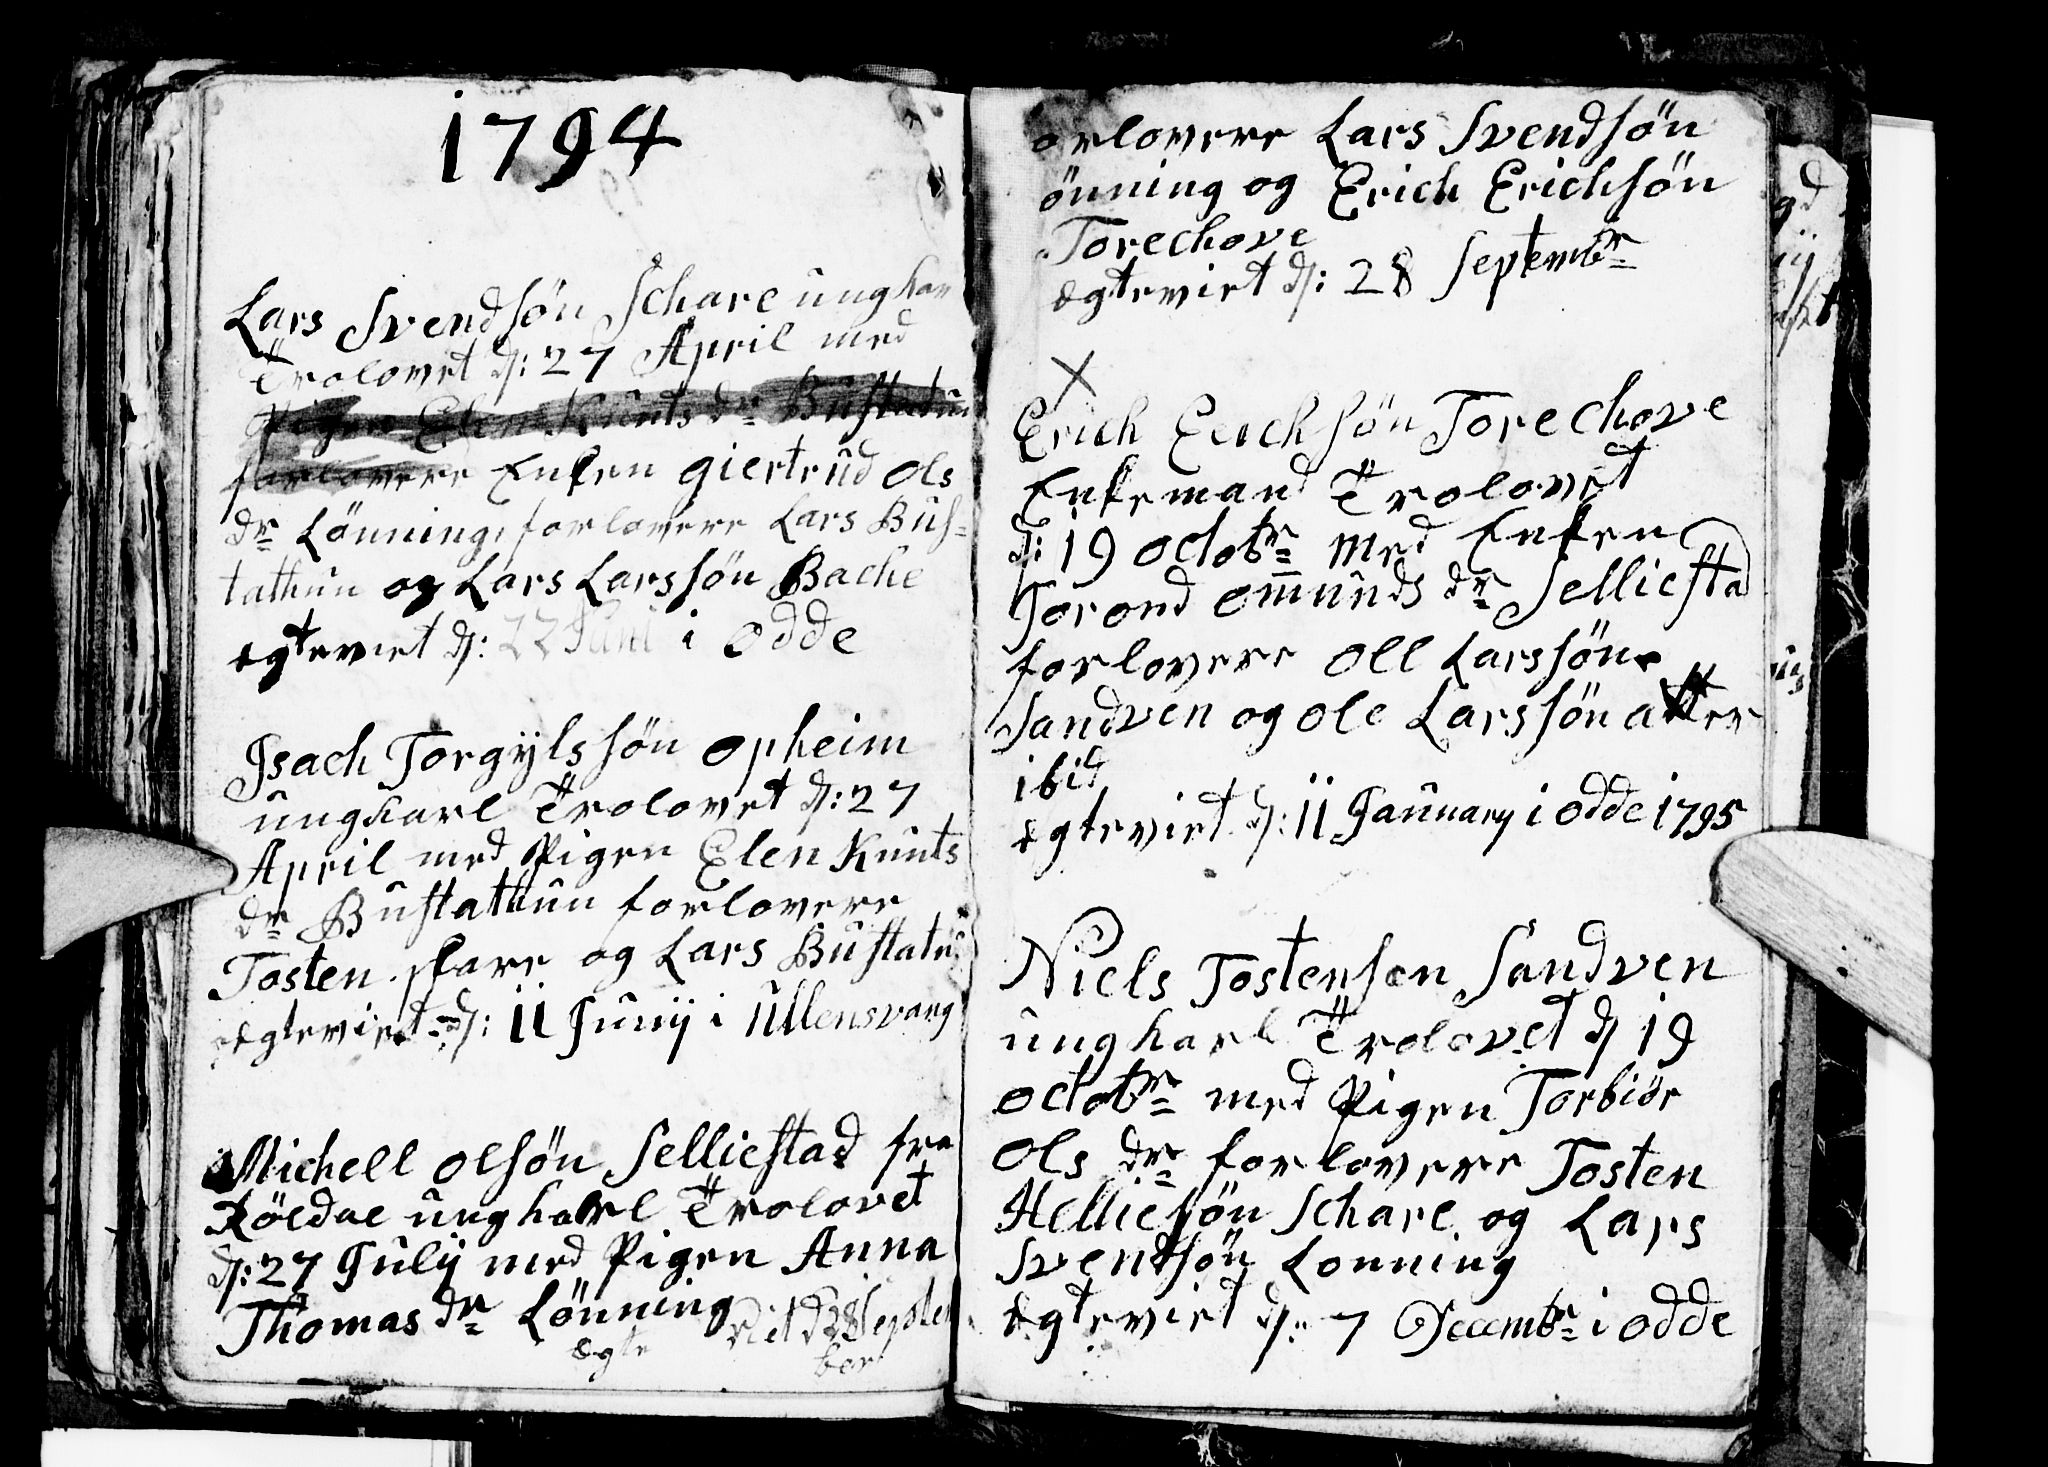 1794
Lars Svendsön Schare ungkar
Trolovet d: 27 April med
Pigen Elen Knuts dr Bustatun
forlovere Enken giertrud Ols
dr Lönning, forlovere Lars Bus-
tathun og Lars Larssön Bache
egtewiet d: 22 Juni i Odde
Isach Torgÿlssön Opheim
ungkarl Trolovet d: 27
April med Pigen Elen Knuts
dr Bustathun forlovere
Tosten skare og Lars Bustatu
egteviet d: 11 Junÿ i Ullensvang
Michell Olsön Selliestad fra
Röldae ungkarl Trolovet
d: 27 Julÿ med Pigen Anna
Thomas dr Lönning
Egte viet d 28 Septem
ber
orlovere Lars Svendsön
önning og Erich Erichsön
Torechove
egteviet d: 28 Septembr
x
Erich Erichsön Torechove
Enkemand Trolovet
d: 19 Octobr med Enken
Torond Omunds dr Selliesta
forlovere Oll Larssön
Sandven og Ole Larssön atter
ibid
egteviet d: 11 January i Odde 1795
Niels Tostenson Sandven
ungkarl Trolovet d 19
Octobr med Pigen Torbiör
Ols dr forlovere Tosten
Helliesön Schare og Lars
Svendsön Lonning
Egteviet d: 7 Decembr i Odde